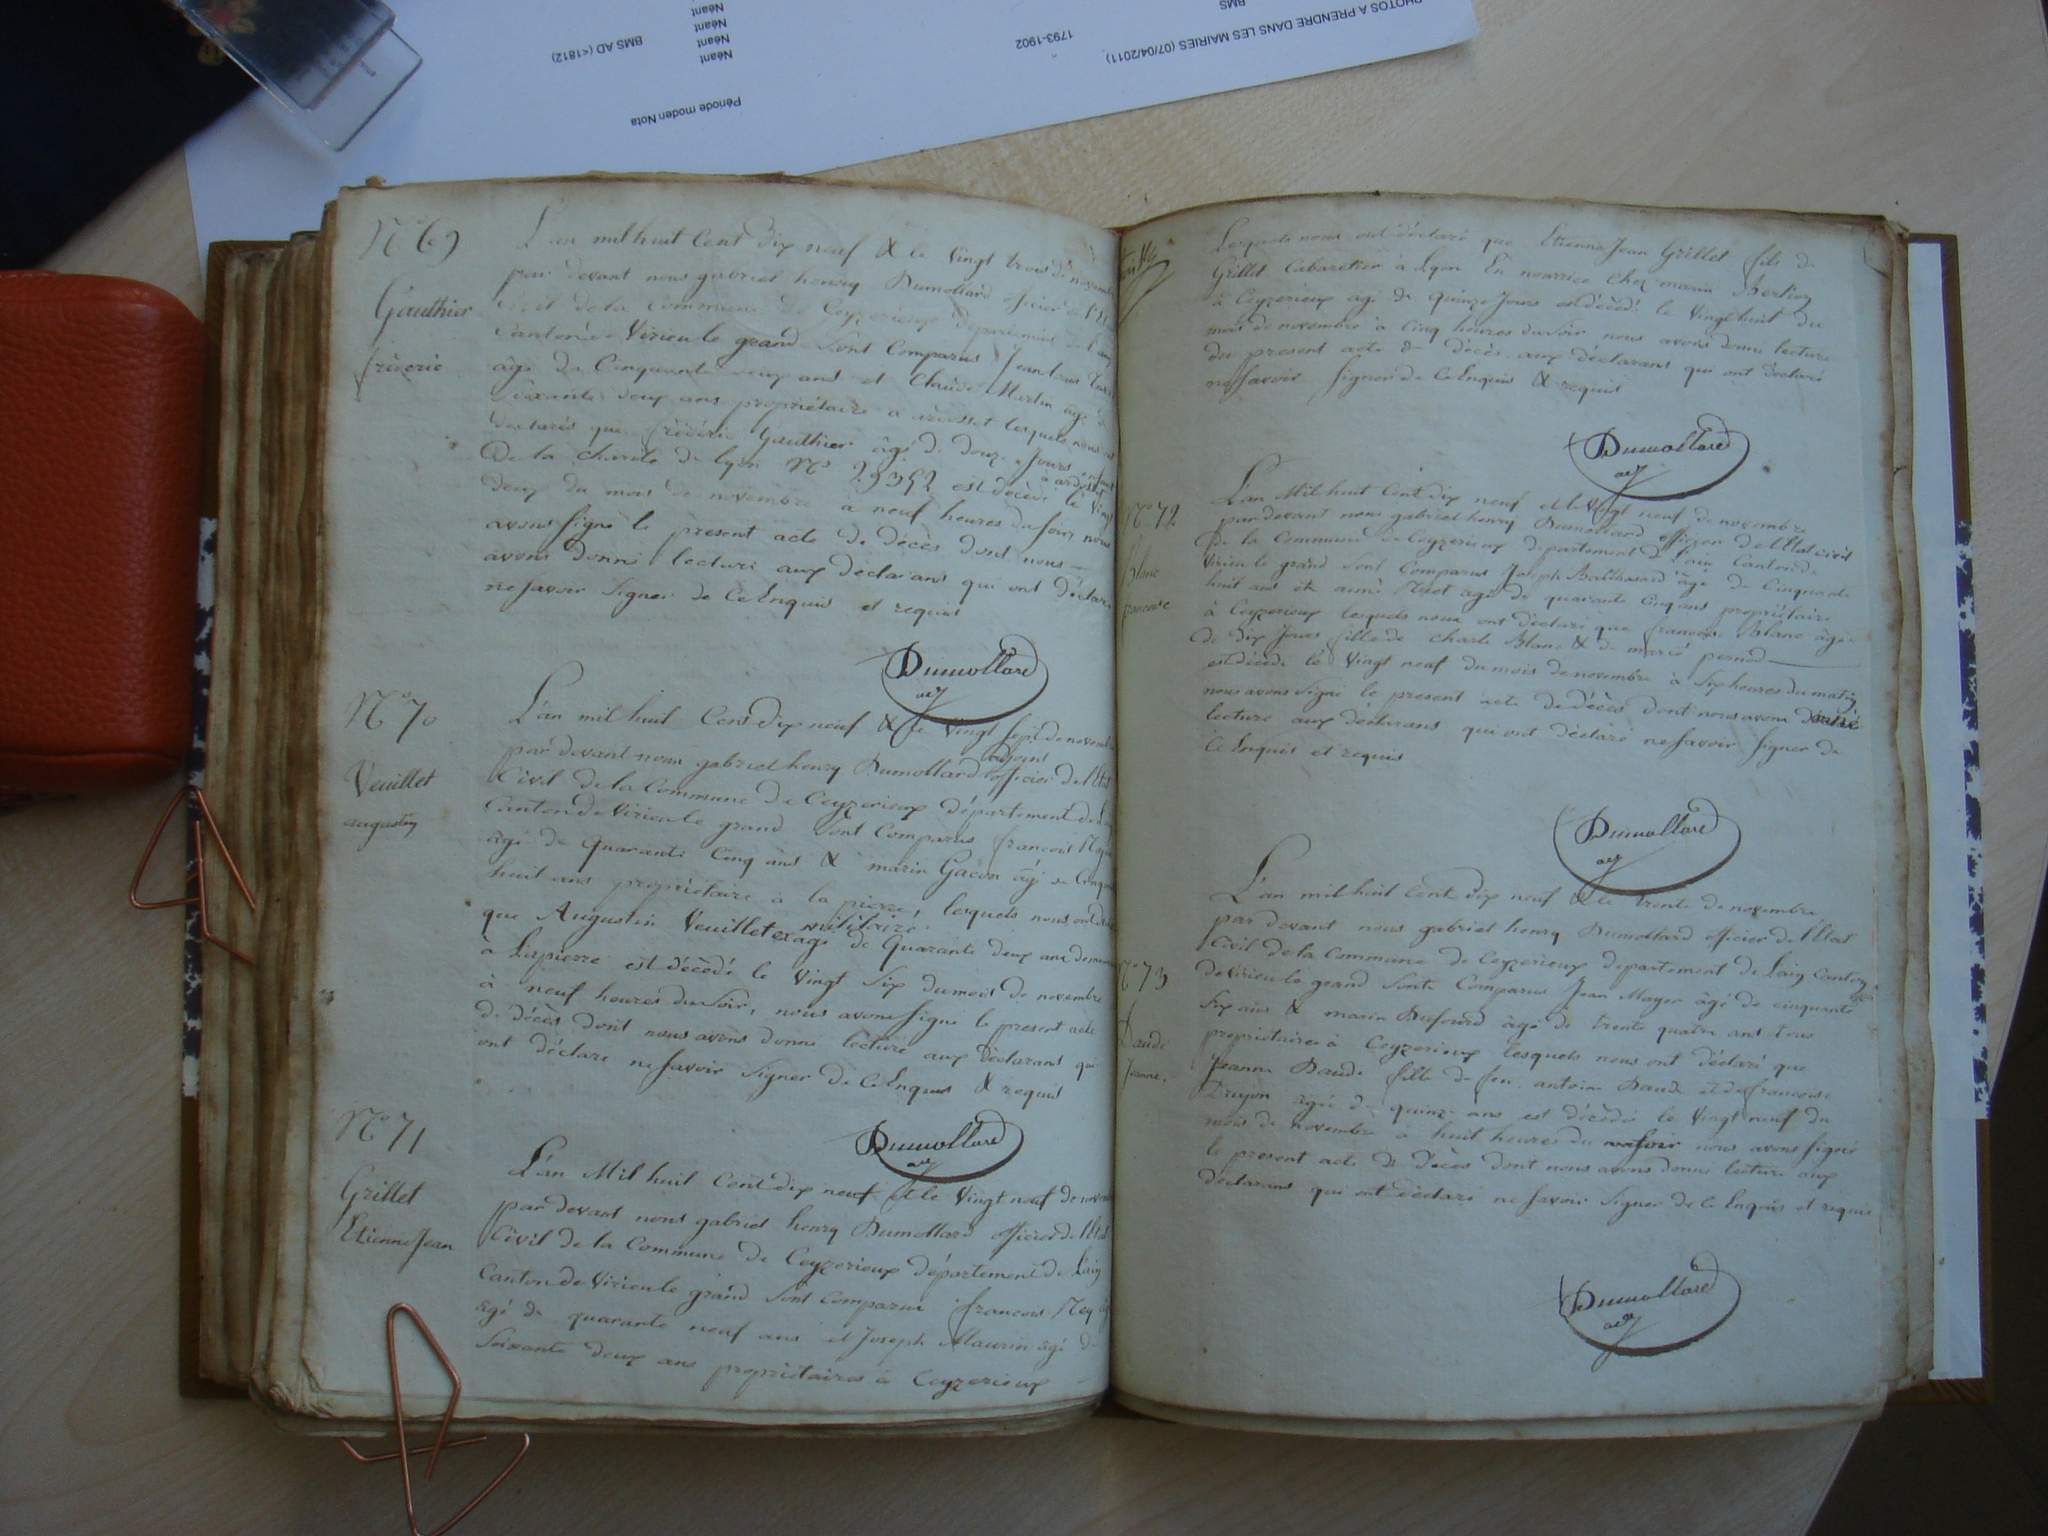 PHOTOS A PRENDRE DANS LES MAIRIES (07/04/2011)
BMS
1793-1902
Néant
Néant
Néant
Néant
BMS AD (<1812)
Période moden Nota
N° 69
Gauthier
fréderic
L'an mil huit Cent Dix neuf & le Vingt trois de novembre
par devant nous gabriel henry Dumollard officier de l'Etat
Civil de la Commune de Ceyzerieux département de l'ain
Canton de Virieu le grand Sont Comparus Jean Louis
âgé de Cinquante deux ans et Claude Martin âgé de
Soixante deux ans propriétaire a lesquels nous ont
declarés que fréderic Gauthier âgé de douze Jours enfant
De la charité de lyon N° 29352 est décédé à le Vingt
deux du mois de novembre à neuf heures du Soir, nous
avons Signé le present acte de décès dont nous
avons donné lecture aux déclarans qui ont déclaré
ne Savoir Signer de Ce Enquis et requis
Dumollard
N° 70
Veuillet
augustin
L'an mil huit Cent Dix neuf & le Vingt Sept de novembre
par devant nous gabriel henry Dumollard adjoint officier de l'Etat
Civil de la Commune de Ceyzerieux département de l'ain
Canton de Virieu le grand Sont Comparus francois
âgé de Quarante Cinq ans & marin Gacon âgé de Cinquante
huit ans propriétaire à la pierre, lesquels nous ont déclaré
que Augustin Veuillet ex militaire agé de Quarante deux ans demeurant
à Lapierre est décédé le Vingt Six du mois de novembre
à neuf heures du Soir, nous avons Signé le present acte
de décès dont nous avons donné lecture aux déclarans qui
ont déclaré ne Savoir Signer de Ce Enquis & requis
Dumollard
N° 71
Grillet
Etienne Jean
L'an Mil huit Cent dix neuf et le Vingt neuf de novembre
par devant nous gabriel henry Dumollard officier de l'Etat
Civil de la Commune de Ceyzerieux département de L'ain
Canton de Virieu le grand Sont Comparus francois Rey
agé de quarante neuf ans et Joseph Maurin âgé de
Soixante deux ans propriétaires à Ceyzerieux
Lesquels nous ont déclaré que Etienne Jean Grillet fils de
Grillet Cabaretier à Lyon En nourrice chez marin Berlioz
à Ceyzerieux agé de quinze Jours est décédé le Vingt huit du
mois de novembre à Cinq heures du Soir nous avons donné lecture
du present acte de décès aux déclarans qui ont déclaré
ne Savoir Signer de Ce Enquis & requis
Dumollard
N° 72
Blanc
francoise
L'an Mil huit Cent dix neuf et le Vingt neuf de novembre
par devant nous gabriel henry Dumollard officier de l'Etat civil
De la Commune de Ceyzerieux département de L'ain Canton de
Virieu le grand Sont Comparus Joseph Balthazard âgé de Cinquante
huit ans et aimé agé de quarante Cinq ans propriétaire
à Ceyzerieux lesquels nous ont déclaré que francoise Blanc âgée
de dix Jours fille de charle Blanc & de marie pernod
est décédé le Vingt neuf du mois de novembre à Six heures du matin
nous avons Signé le present acte de décès dont nous avons donné
lecture aux déclarans qui ont déclaré ne Savoir Signer de
Ce Enquis et requis
Dumollard
N° 73
Daude
Jeanne
L'an mil huit Cent dix neuf & le trente de novembre
par devant nous gabriel henry Dumollard officier de l'Etat
Civil de la Commune de Ceyzerieux département de Lain Canton
de Virieu le grand Sont Comparus Jean Mayer âgé de cinquante
Six ans & marin Dufourd âgé de trente quatre ans tous
propriétaires à Ceyzerieux lesquels nous ont déclaré que
Jeanne Daude fille de feu antoine Daude et de francoise
Drujon âgée de quinze ans est décédée le Vingt neuf du
mois de novembre à huit heures du soir nous avons Signé
le present acte de Décès dont nous avons donné lecture aux
déclarans qui ont déclaré ne Savoir Signer de Ce Enquis et requis
Dumollard